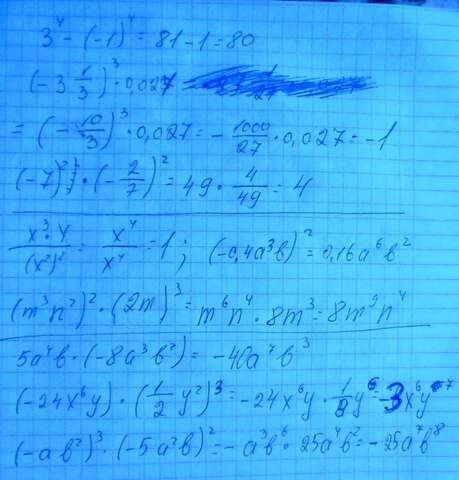 3⁴ - (-1)⁴ = 81 - 1 = 80
(-3 1/3)³ · 0,027
= (-10/3)³ · 0,027 = - 1000/27 · 0,027 = -1
(-7)² · (-2/7)² = 49 · 4/49 = 4
x³·x/(x²)² = x⁴/x⁴ = 1 ; (-0,4a³b)² = 0,16a⁶b²
(m³n²)² · (2m)³ = m⁶n⁴ · 8m³ = 8m⁹n⁴
5a⁴b · (-8a³b²) = -40a⁷b³
(-24x⁶y) · (1/2 y²)³ = -24x⁶y · 1/8 y⁶ = -3x⁶y⁷
(-ab²)³ · (-5a²b)² = -a³b⁶ · 25a⁴b² = -25a⁷b⁸